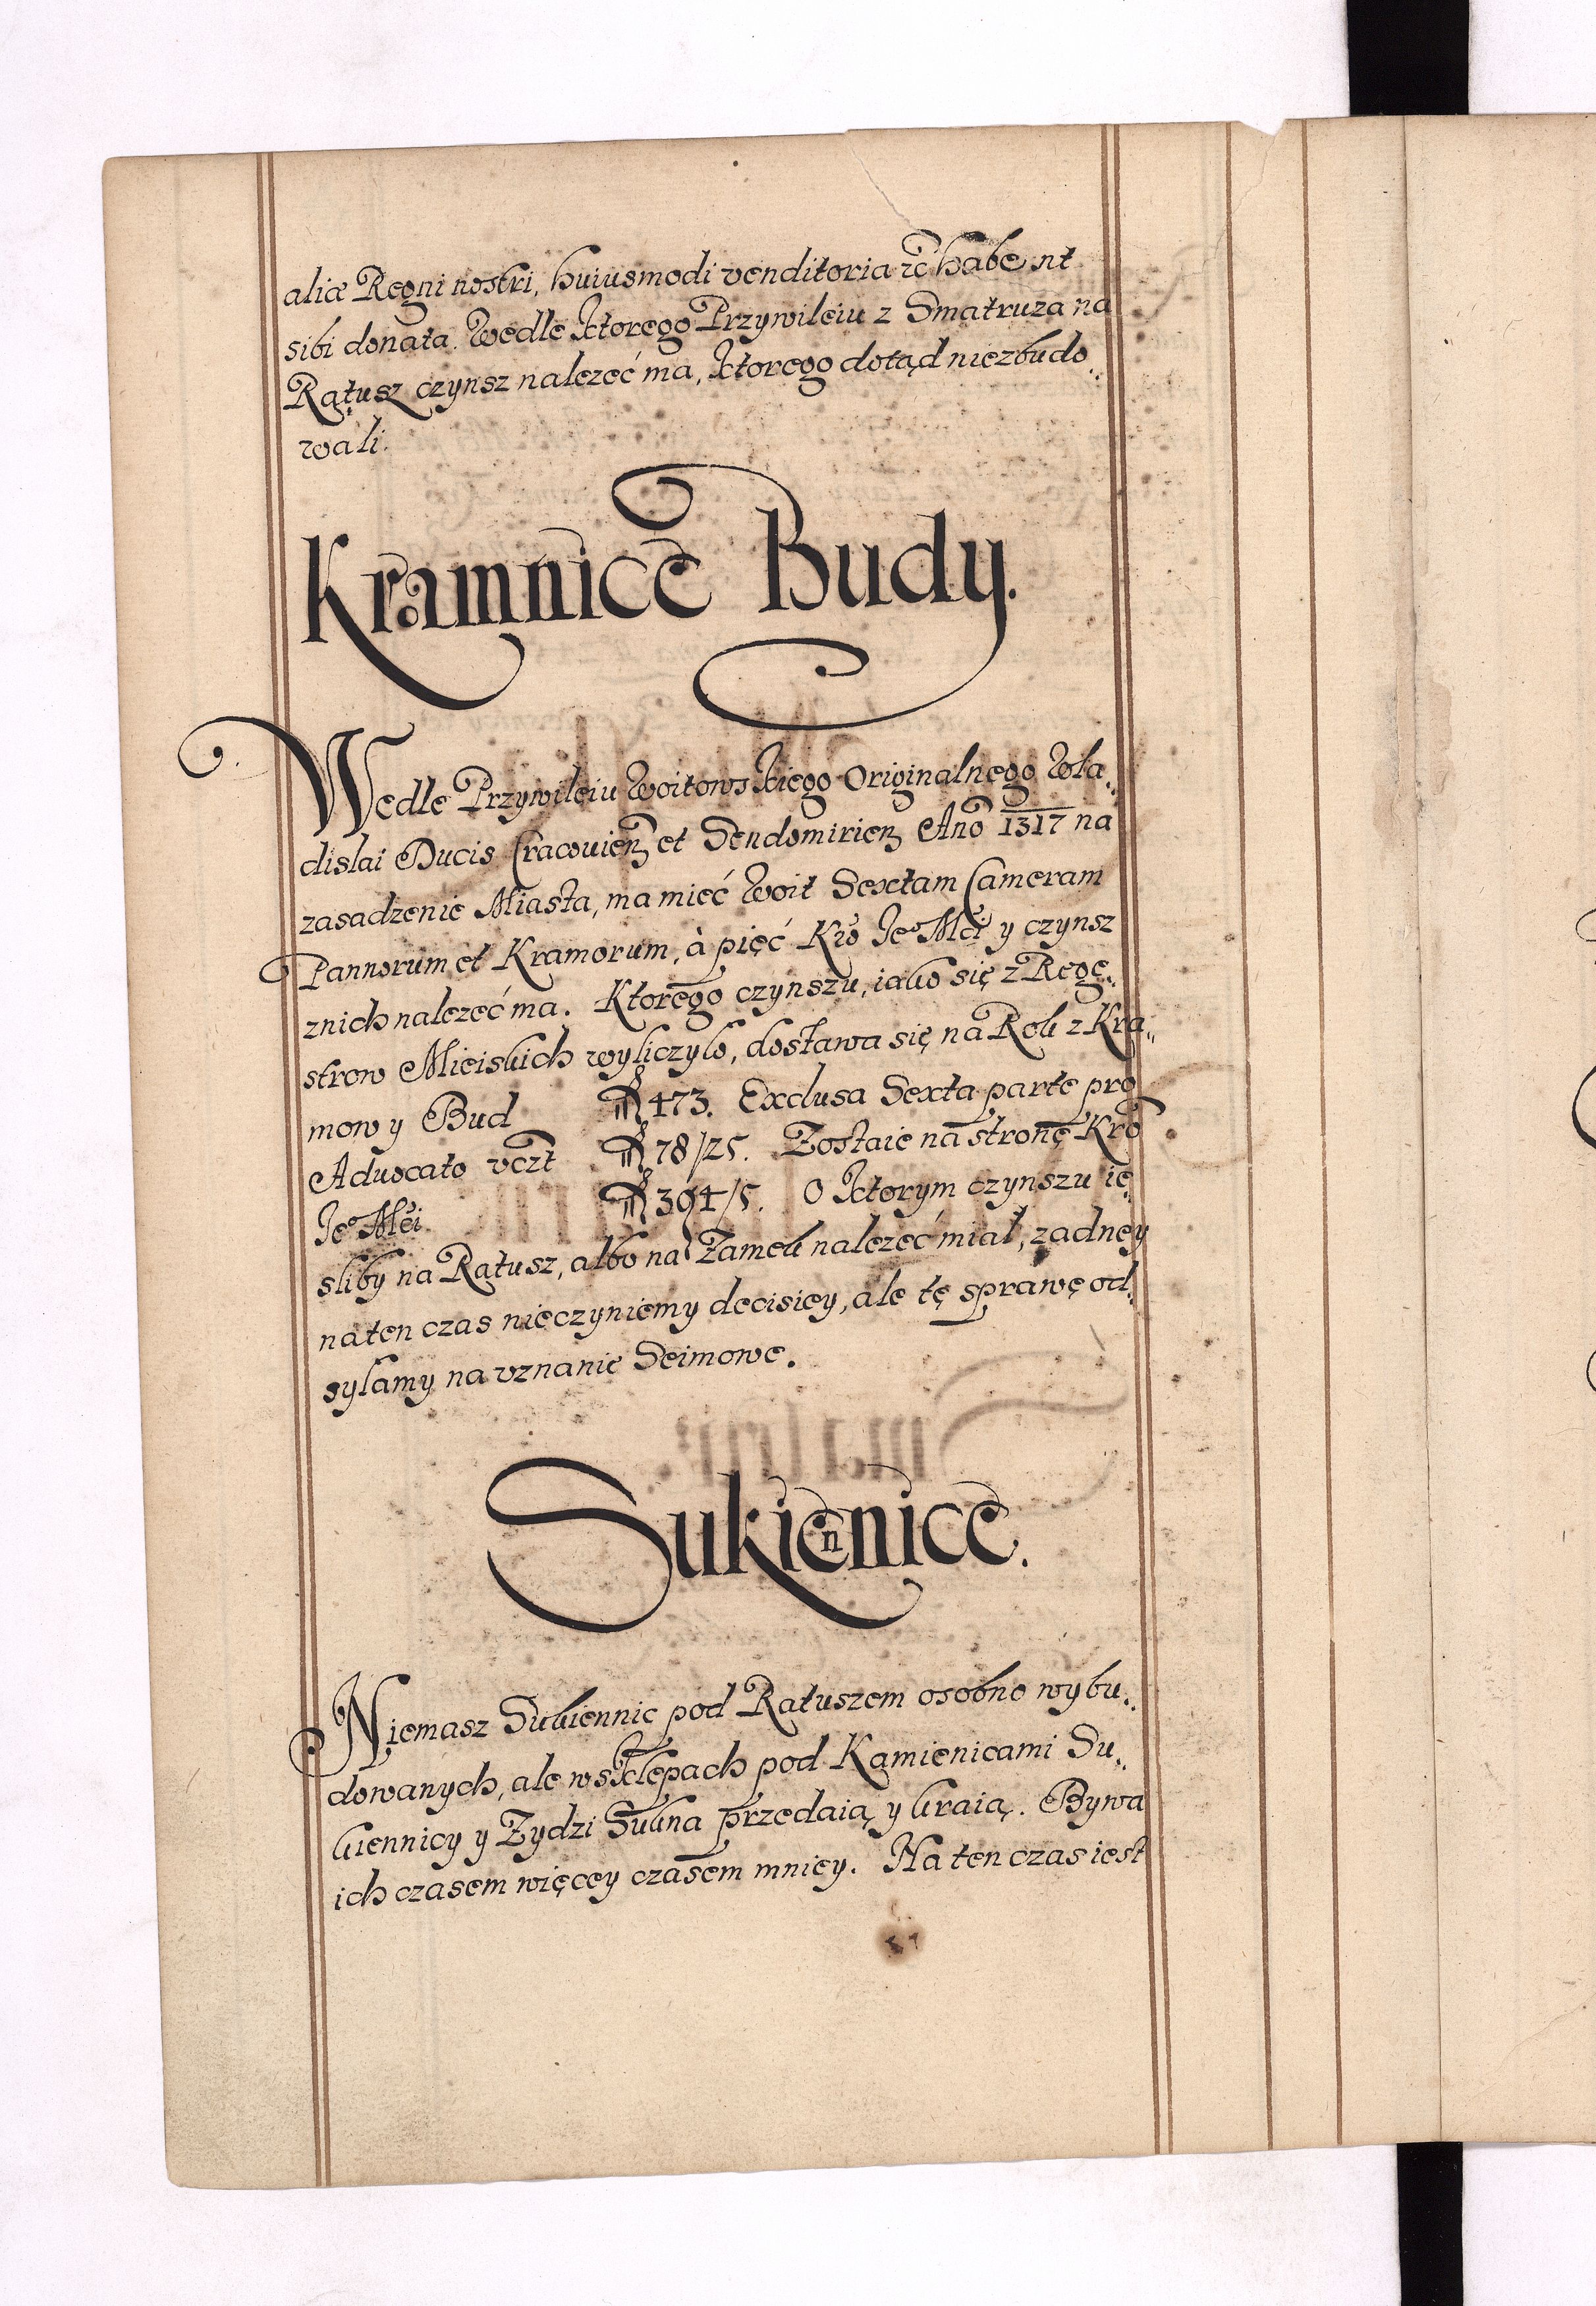 aliæ Regni nostri, huiusmodi venditoria &c habent
sibi donata. Wedle ktorego Przywileiu z Smatruza na
Ratusz czynsz nalezeć ma, ktorego dotąd niezbudo„
wali.
Kramnice Budy.
Wedle Przywileiu Woitowskiego Originalnego Wla„
dislai Ducis Cracouienz et Sendomirienz Ano 1317 na
zasadzenie Miasta, ma mieć Woit Sextam Cameram
Pannorum et Kramorum, à pięć Kro Je° Mći y czynsz
znich nalezeć ma. Ktorego czynszu, iako się z Rege„
strow Mieiskich wyliczyło, dostawa się na Rok z Kra„
mow y Bud 473. Exclusa Sexta parte pro
Aduocato vczt 78/25. Zostaie na stronę Kro
Je° Mći 394/5. O ktorym czynszu ie„
sliby na Ratusz, albo na Zamek nalezeć miał, zadney
na ten czas nieczyniemy decisiey, ale tę sprawę od„
syłamy na vznanie Seimowe.
Sukiennice.
Niemasz Sukiennic pod Ratuszem osobno wybu„
dowanych, ale w sklepach pod Kamienicami Su„
kiennicy y Zydzi Sukna przedaią y kraią. Bywa
ich czasem więcey czasem mniey. Na ten czas iest